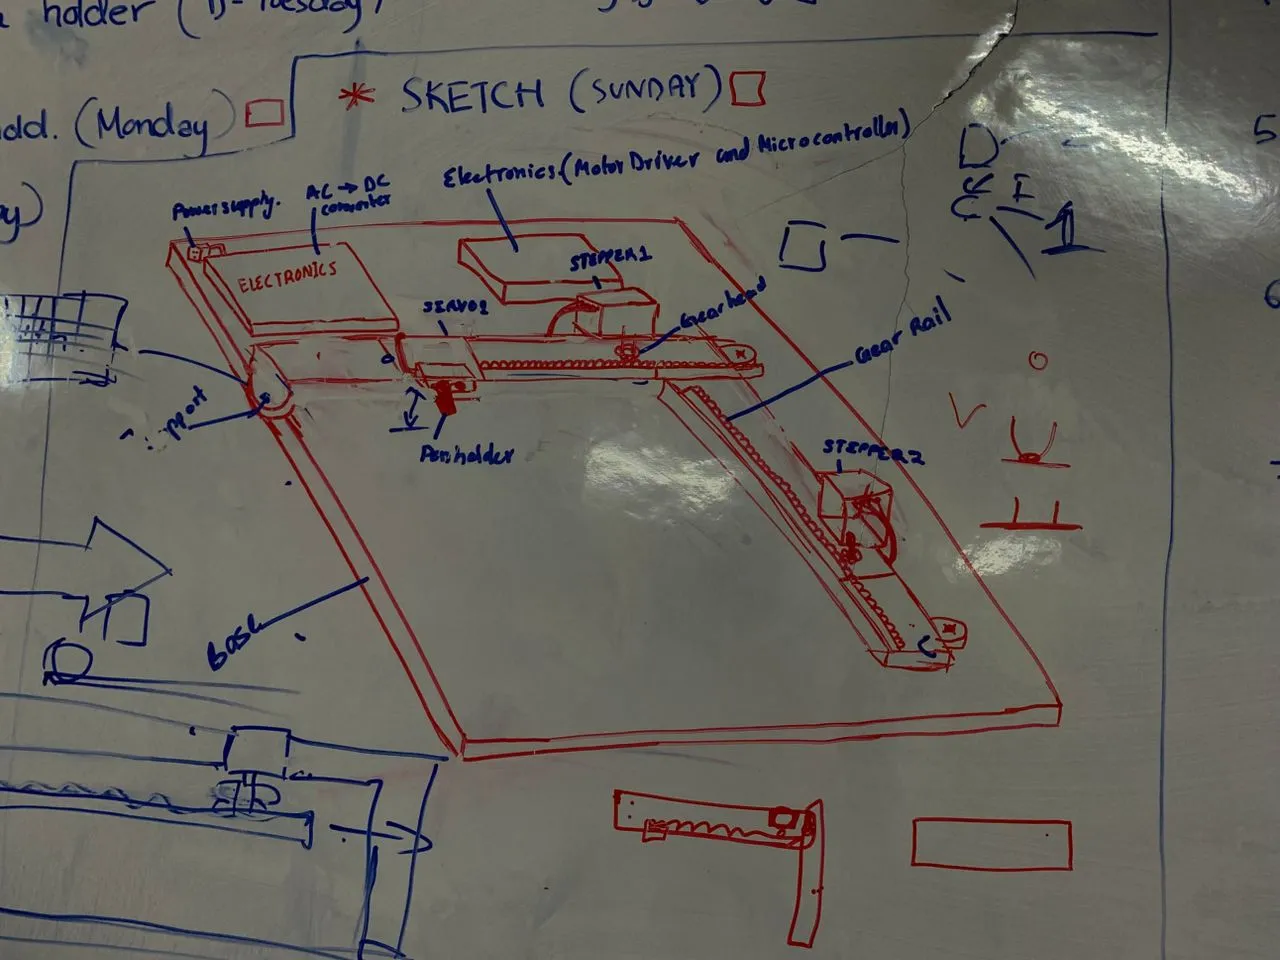 holder (D-Tuesday)
add. (Monday)
* SKETCH (SUNDAY)
5
Electronics (Motor Driver and Microcontroller)
AC → DC
converter
Power supply.
ELECTRONICS
STEPPER 1
SERVO1
Gearhead
Gear Rail
Penholder
STEPPER 2
Base